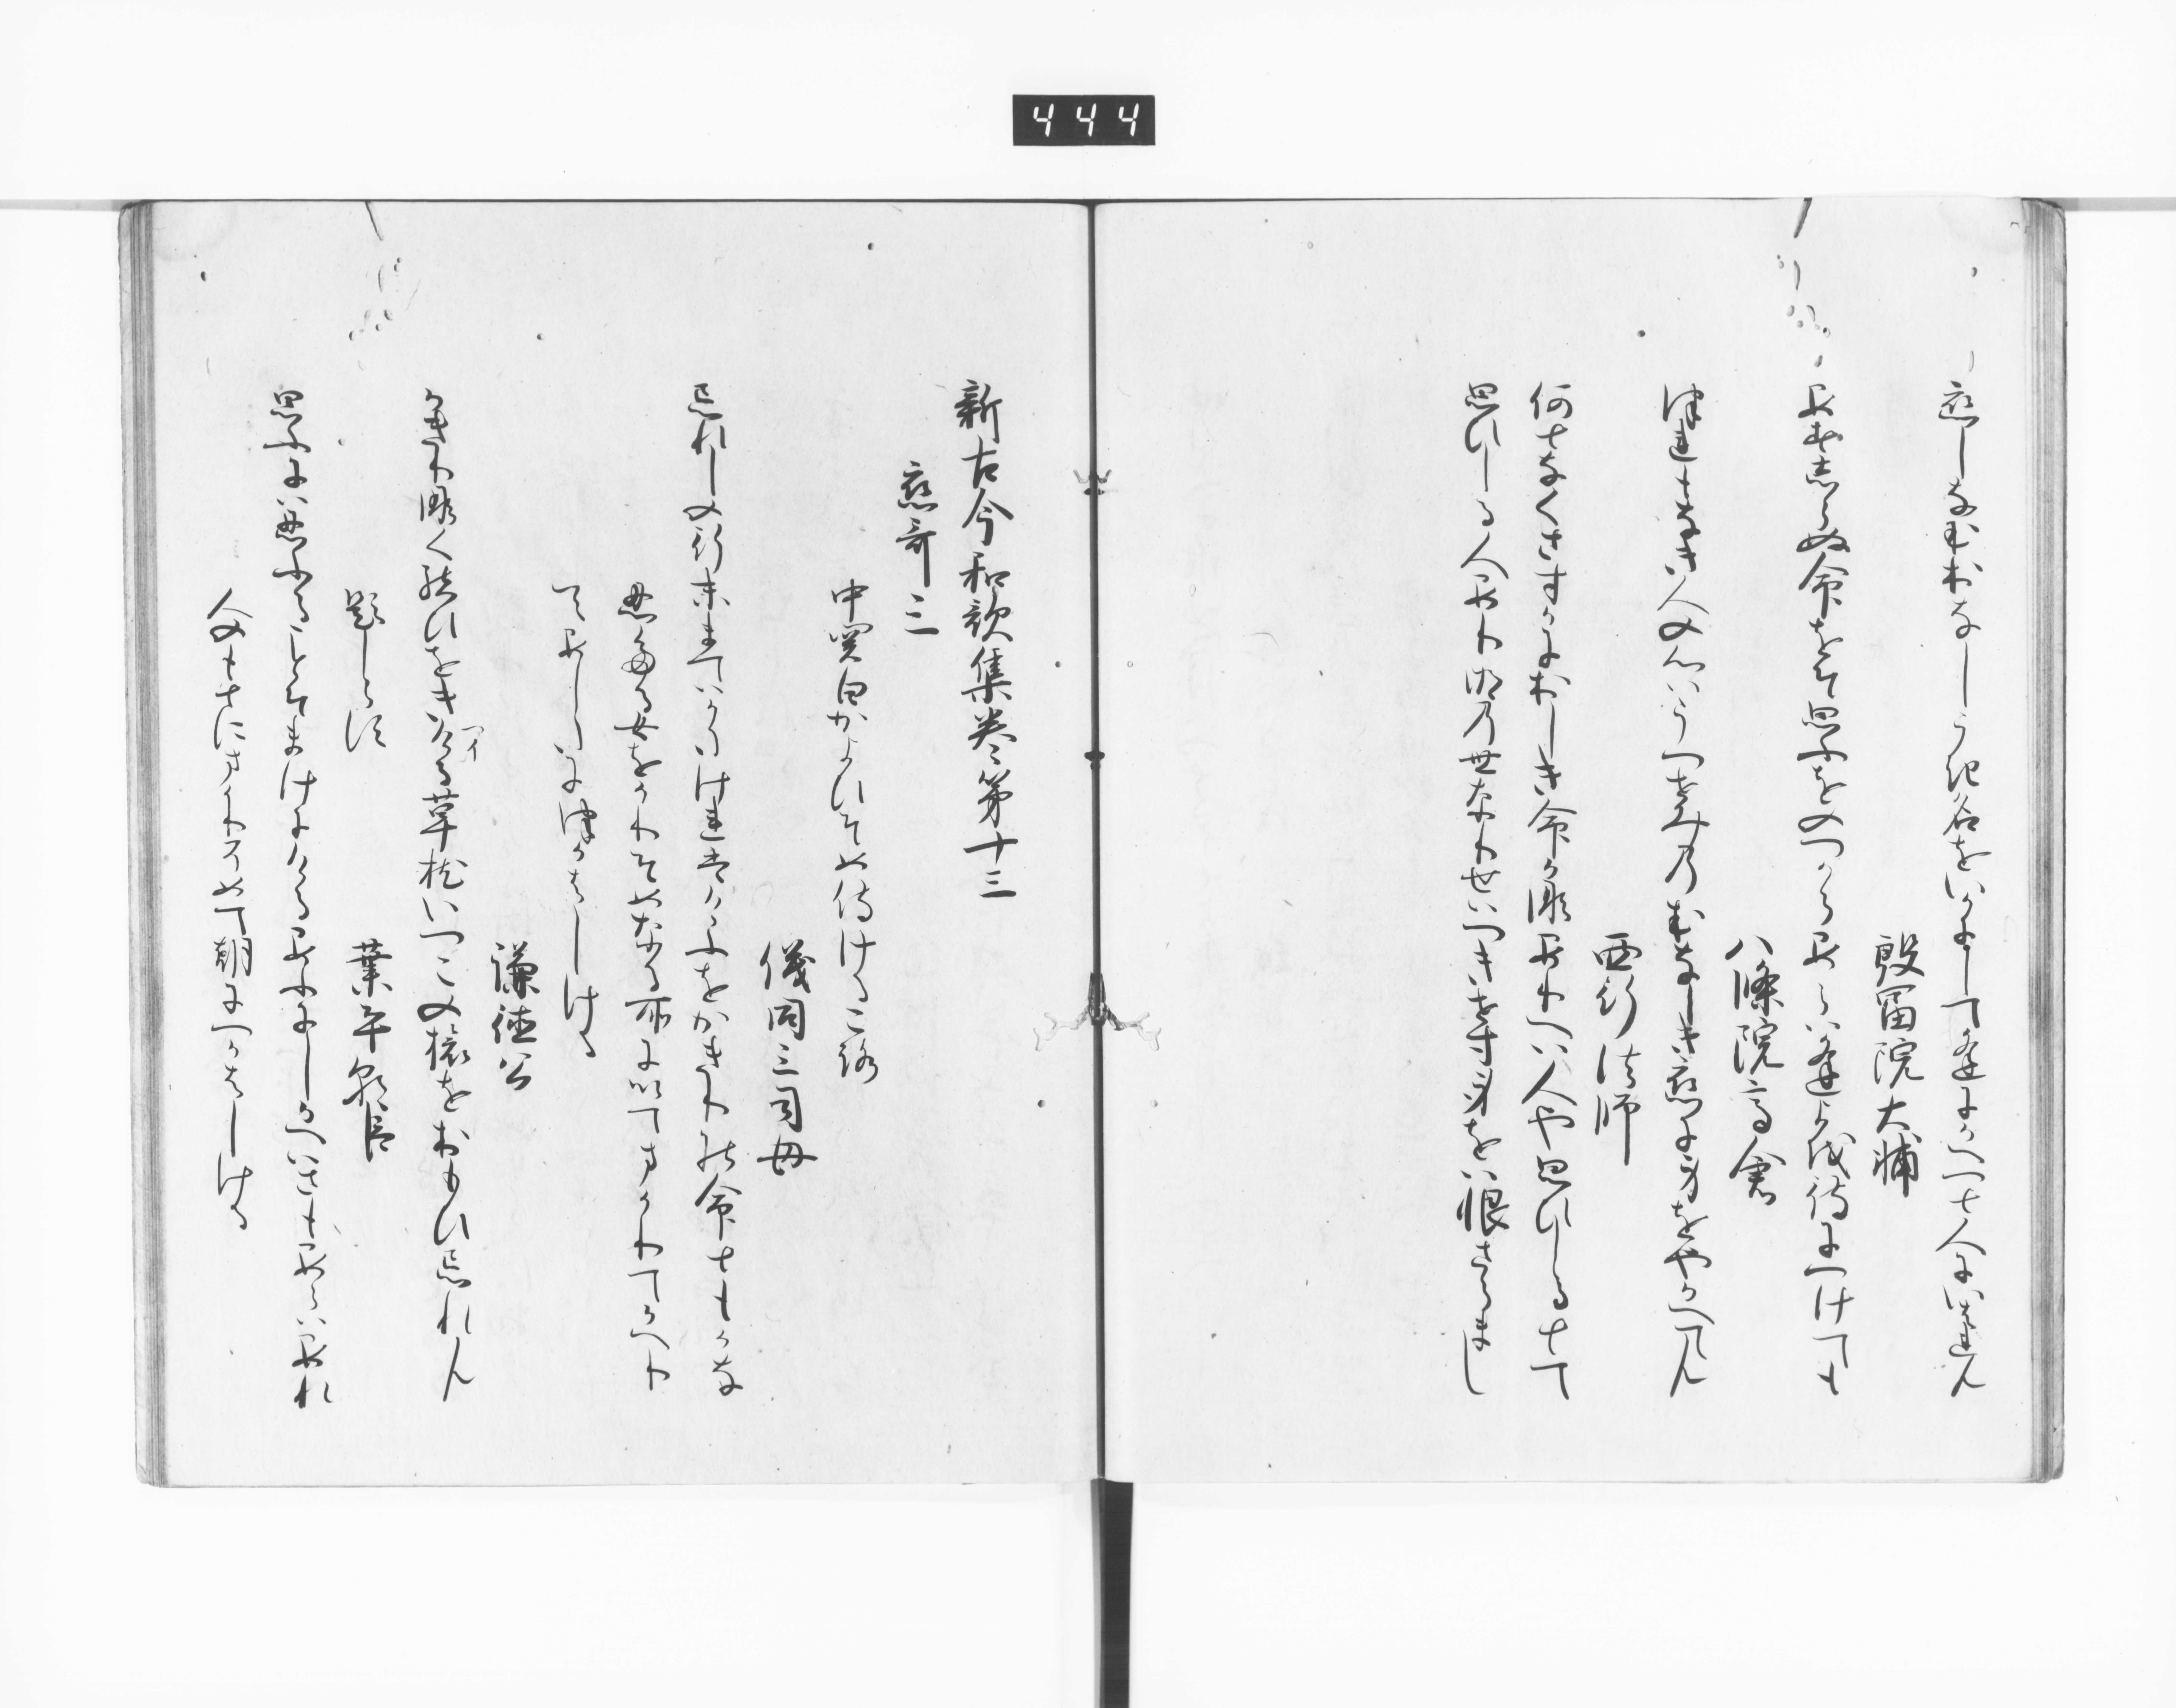 恋しなむおなしうき名をいかにして逢にかへつと人にいはれん
殷冨院大輔
あすしらぬ命をそ思ふをのつからあらは逢よを待につけても
八條院高倉
つれもなき人の心はうつせみのむなしき恋に身をやかへてん
西行法師
何となくさすかにおしき命かなありへは人や思ひしるとて
思ひしる人あり明の世なりせはつきせす身をは恨さらまし
新古今和歌集巻第十三
恋哥三
中関白かよひそめ侍けるころ
儀同三司母
忘れしの行末まてはかたけれはけふをかきりの命ともかな
忍たる女をかりそめなる所にゐてまかりてかへり
てあしたにつかはしける
謙徳公
かきりなく結ひをきける草枕いつこの旅をおもひ忘れん
題しらす
業平朝臣
思ふには忍ふることそまけにけるあふにしかへはさもあらはあれ
人のもとにまかりそめて朝につかはしける
444